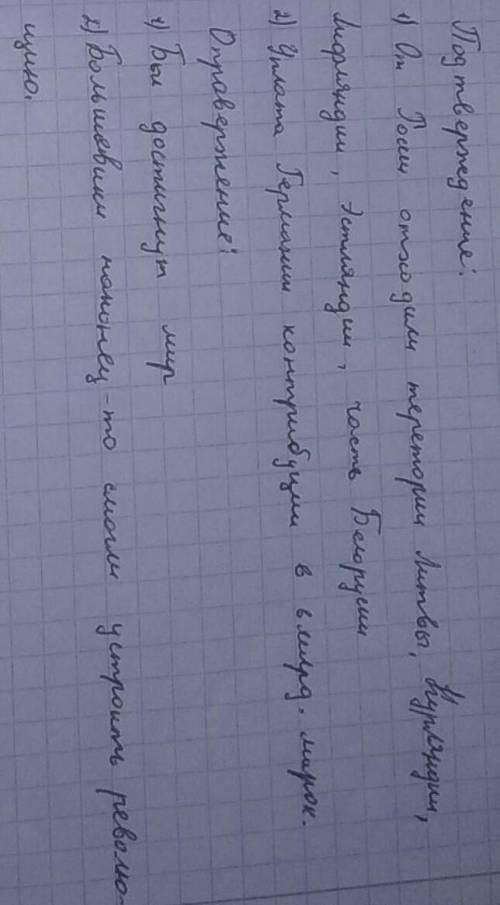 Подтверждение:
1) От Росии отходили теретории Литвы, Курляндии,
Лифляндии, Эстляндии, часть Белорусии
2) Уплата Германии контрибуции в 6 млрд. марок.
Оправержение:
1) Был достигнут мир
2) Большевики наконец-то смогли устроить револю-
цию.